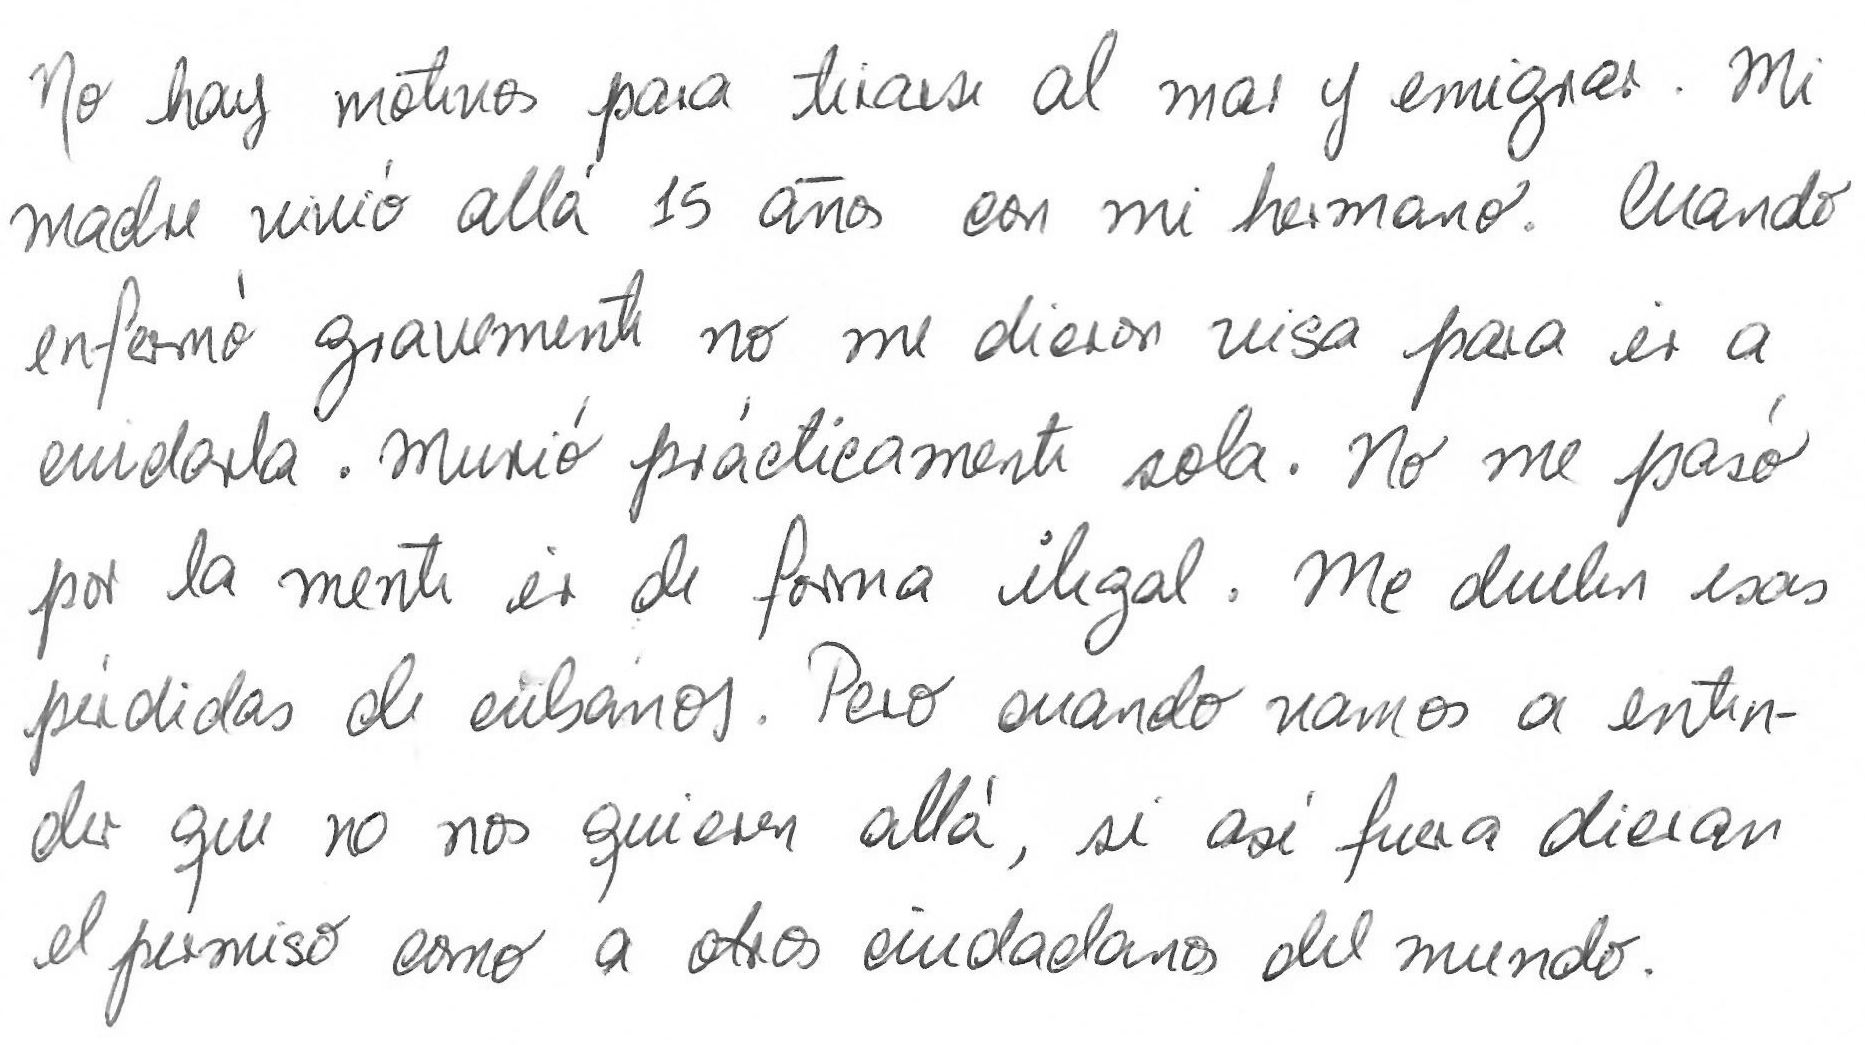 No hay motivos para tirarse al mar y emigrar. Mi
madre vivió allá 15 años con mi hermano. Cuando
enfermó gravemente no me dieron visa para ir a
cuidarla. Murió prácticamente sola. No me pasó
por la mente ir de forma ilegal. Me duelen esas
pérdidas de cubanos. Pero cuando vamos a enten-
der que no nos quieren allá, si así fuera dieran
el permiso como a otros ciudadanos del mundo.